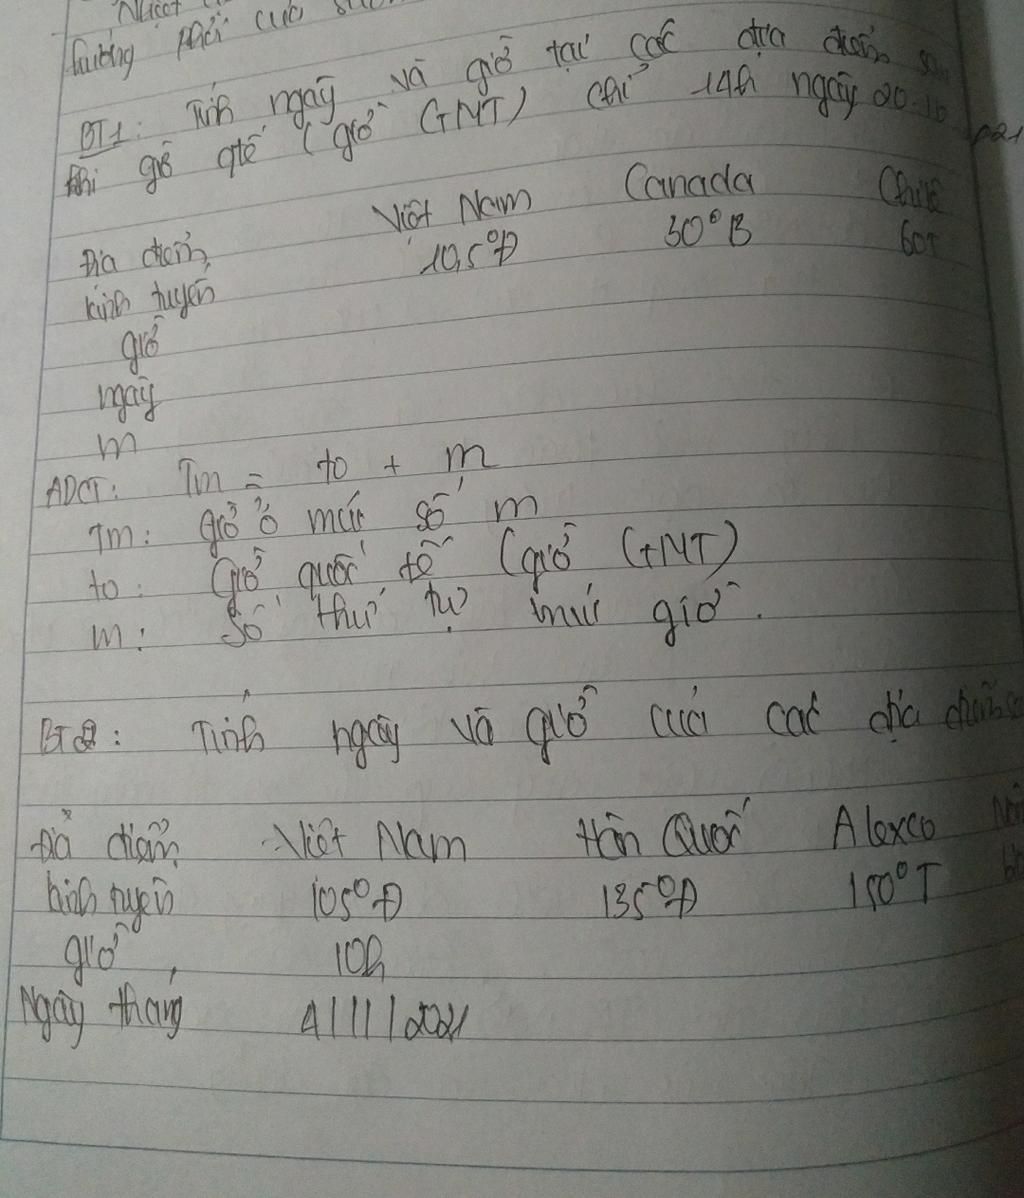 hướng phải của
BT1: Tính ngày và giờ tại các địa điểm sau
khi giờ qtế (giờ GMT) chỉ 14h ngày 20-10
Địa điểm Việt Nam Canada Chilê
kinh tuyến 105°Đ 30°B 60T
giờ
ngày
m
ADCT: Tm = to + m
Tm: Giờ ở múi số m
to: Giờ quốc tế (giờ GMT)
m: Số thứ tự múi giờ.
BT2: Tính ngày và giờ của các địa điểm
Địa điểm Việt Nam Hàn Quốc Alexco
kinh tuyến 105°Đ 135°Đ 150°T
giờ 10h
Ngày tháng 4/11/2021